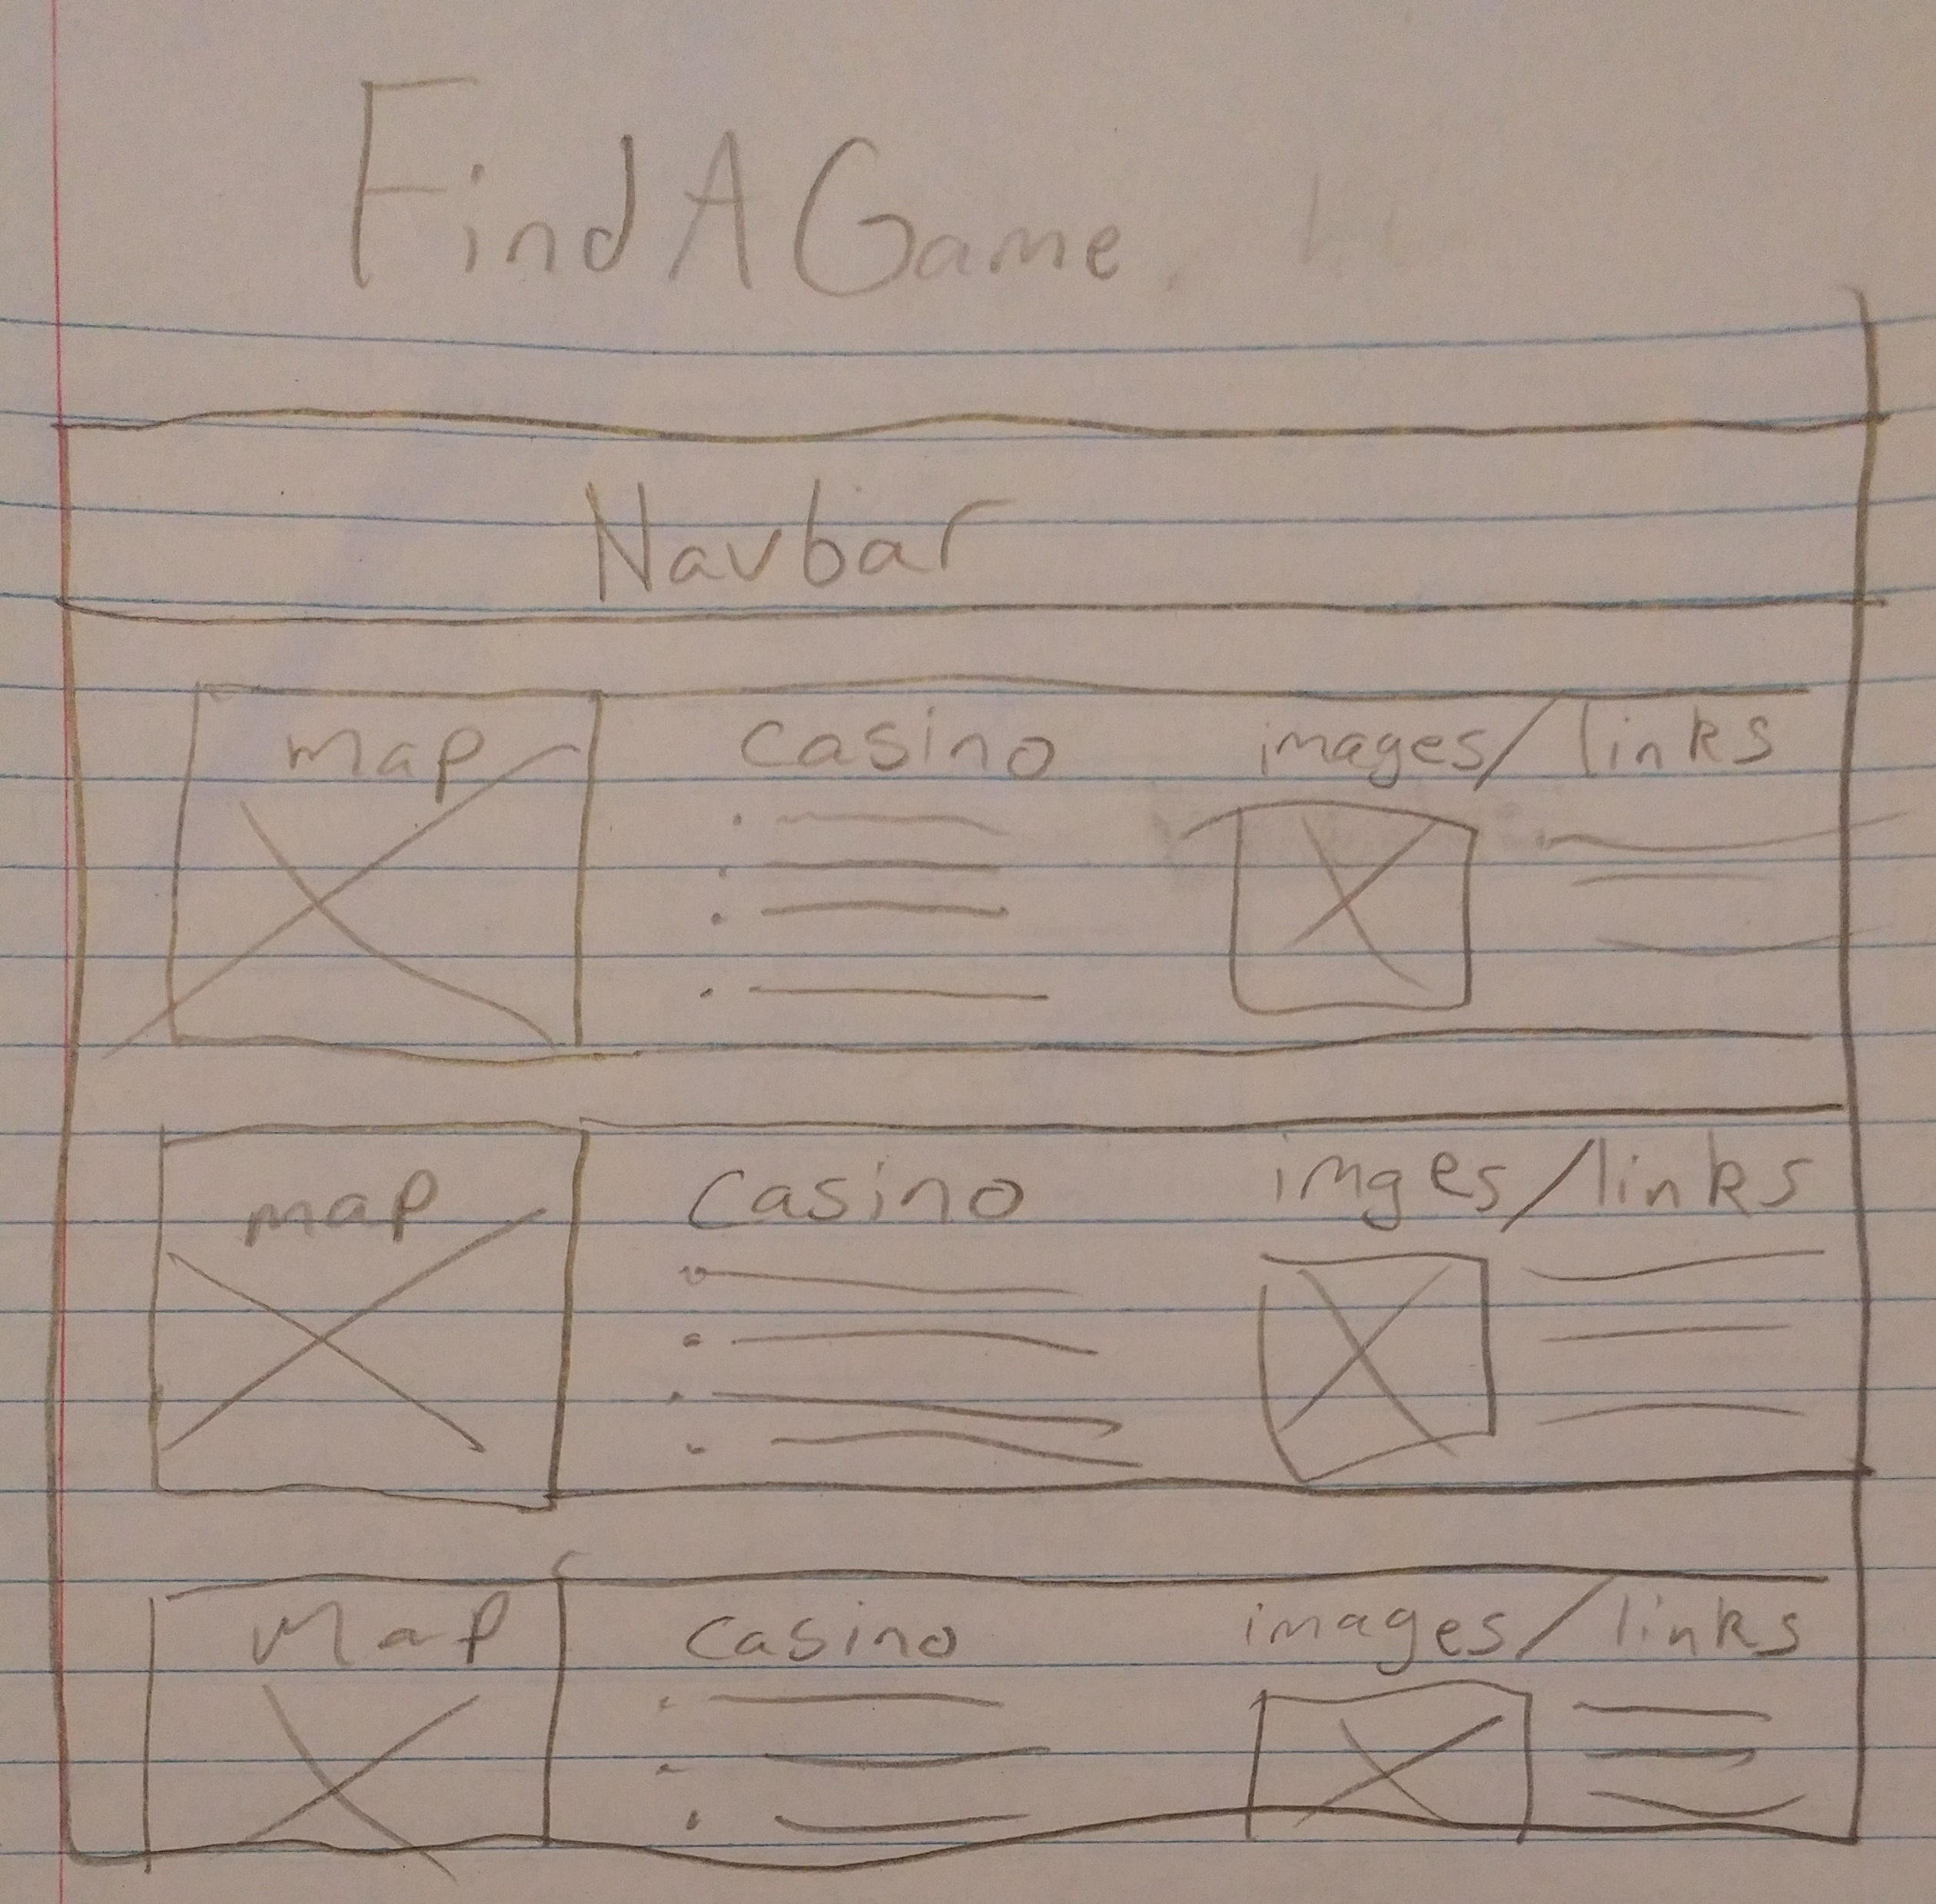 Find A Game
Navbar
map casino images/links
map casino imges/links
Map casino images/links